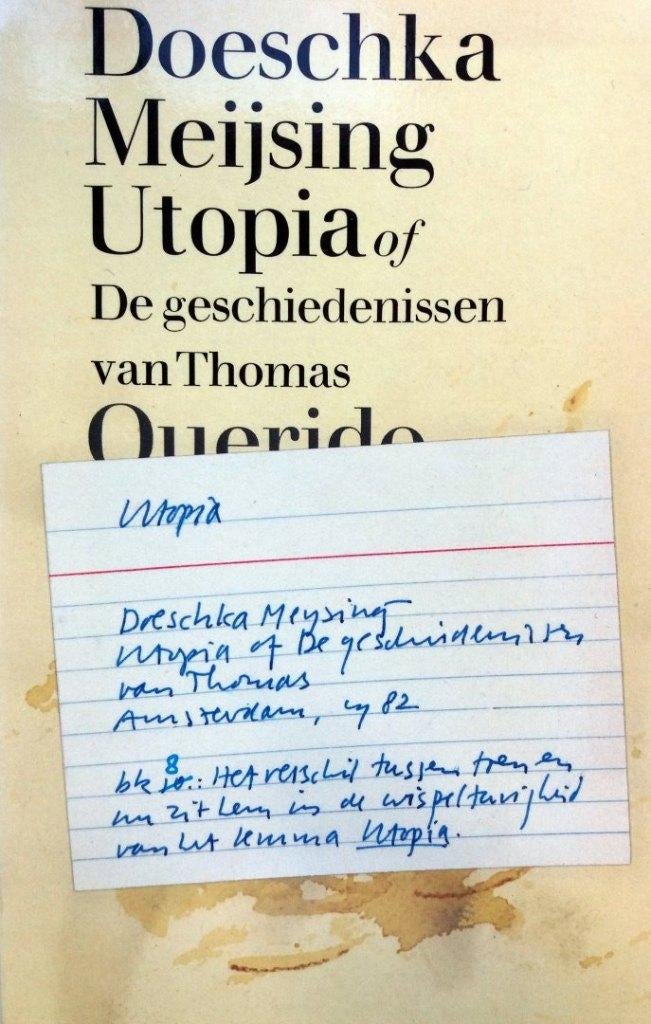 Doeschka
Meijsing
Utopia of
De geschiedenissen
van Thomas
Querido
Utopia
Doeschka Meysing
Utopia of De geschiedenissen
van Thomas
Amsterdam, 1982
blz 8: Het verschil tussen toen en
nu zit hem in de wispelturigheid
van het lemma Utopia.